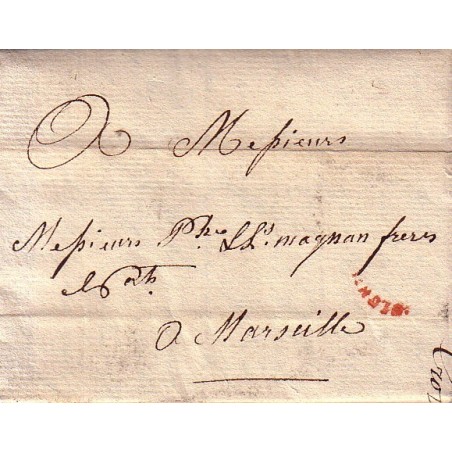 A Messieurs
Messieurs Phe. & Ls. magnan freres
A Marseille